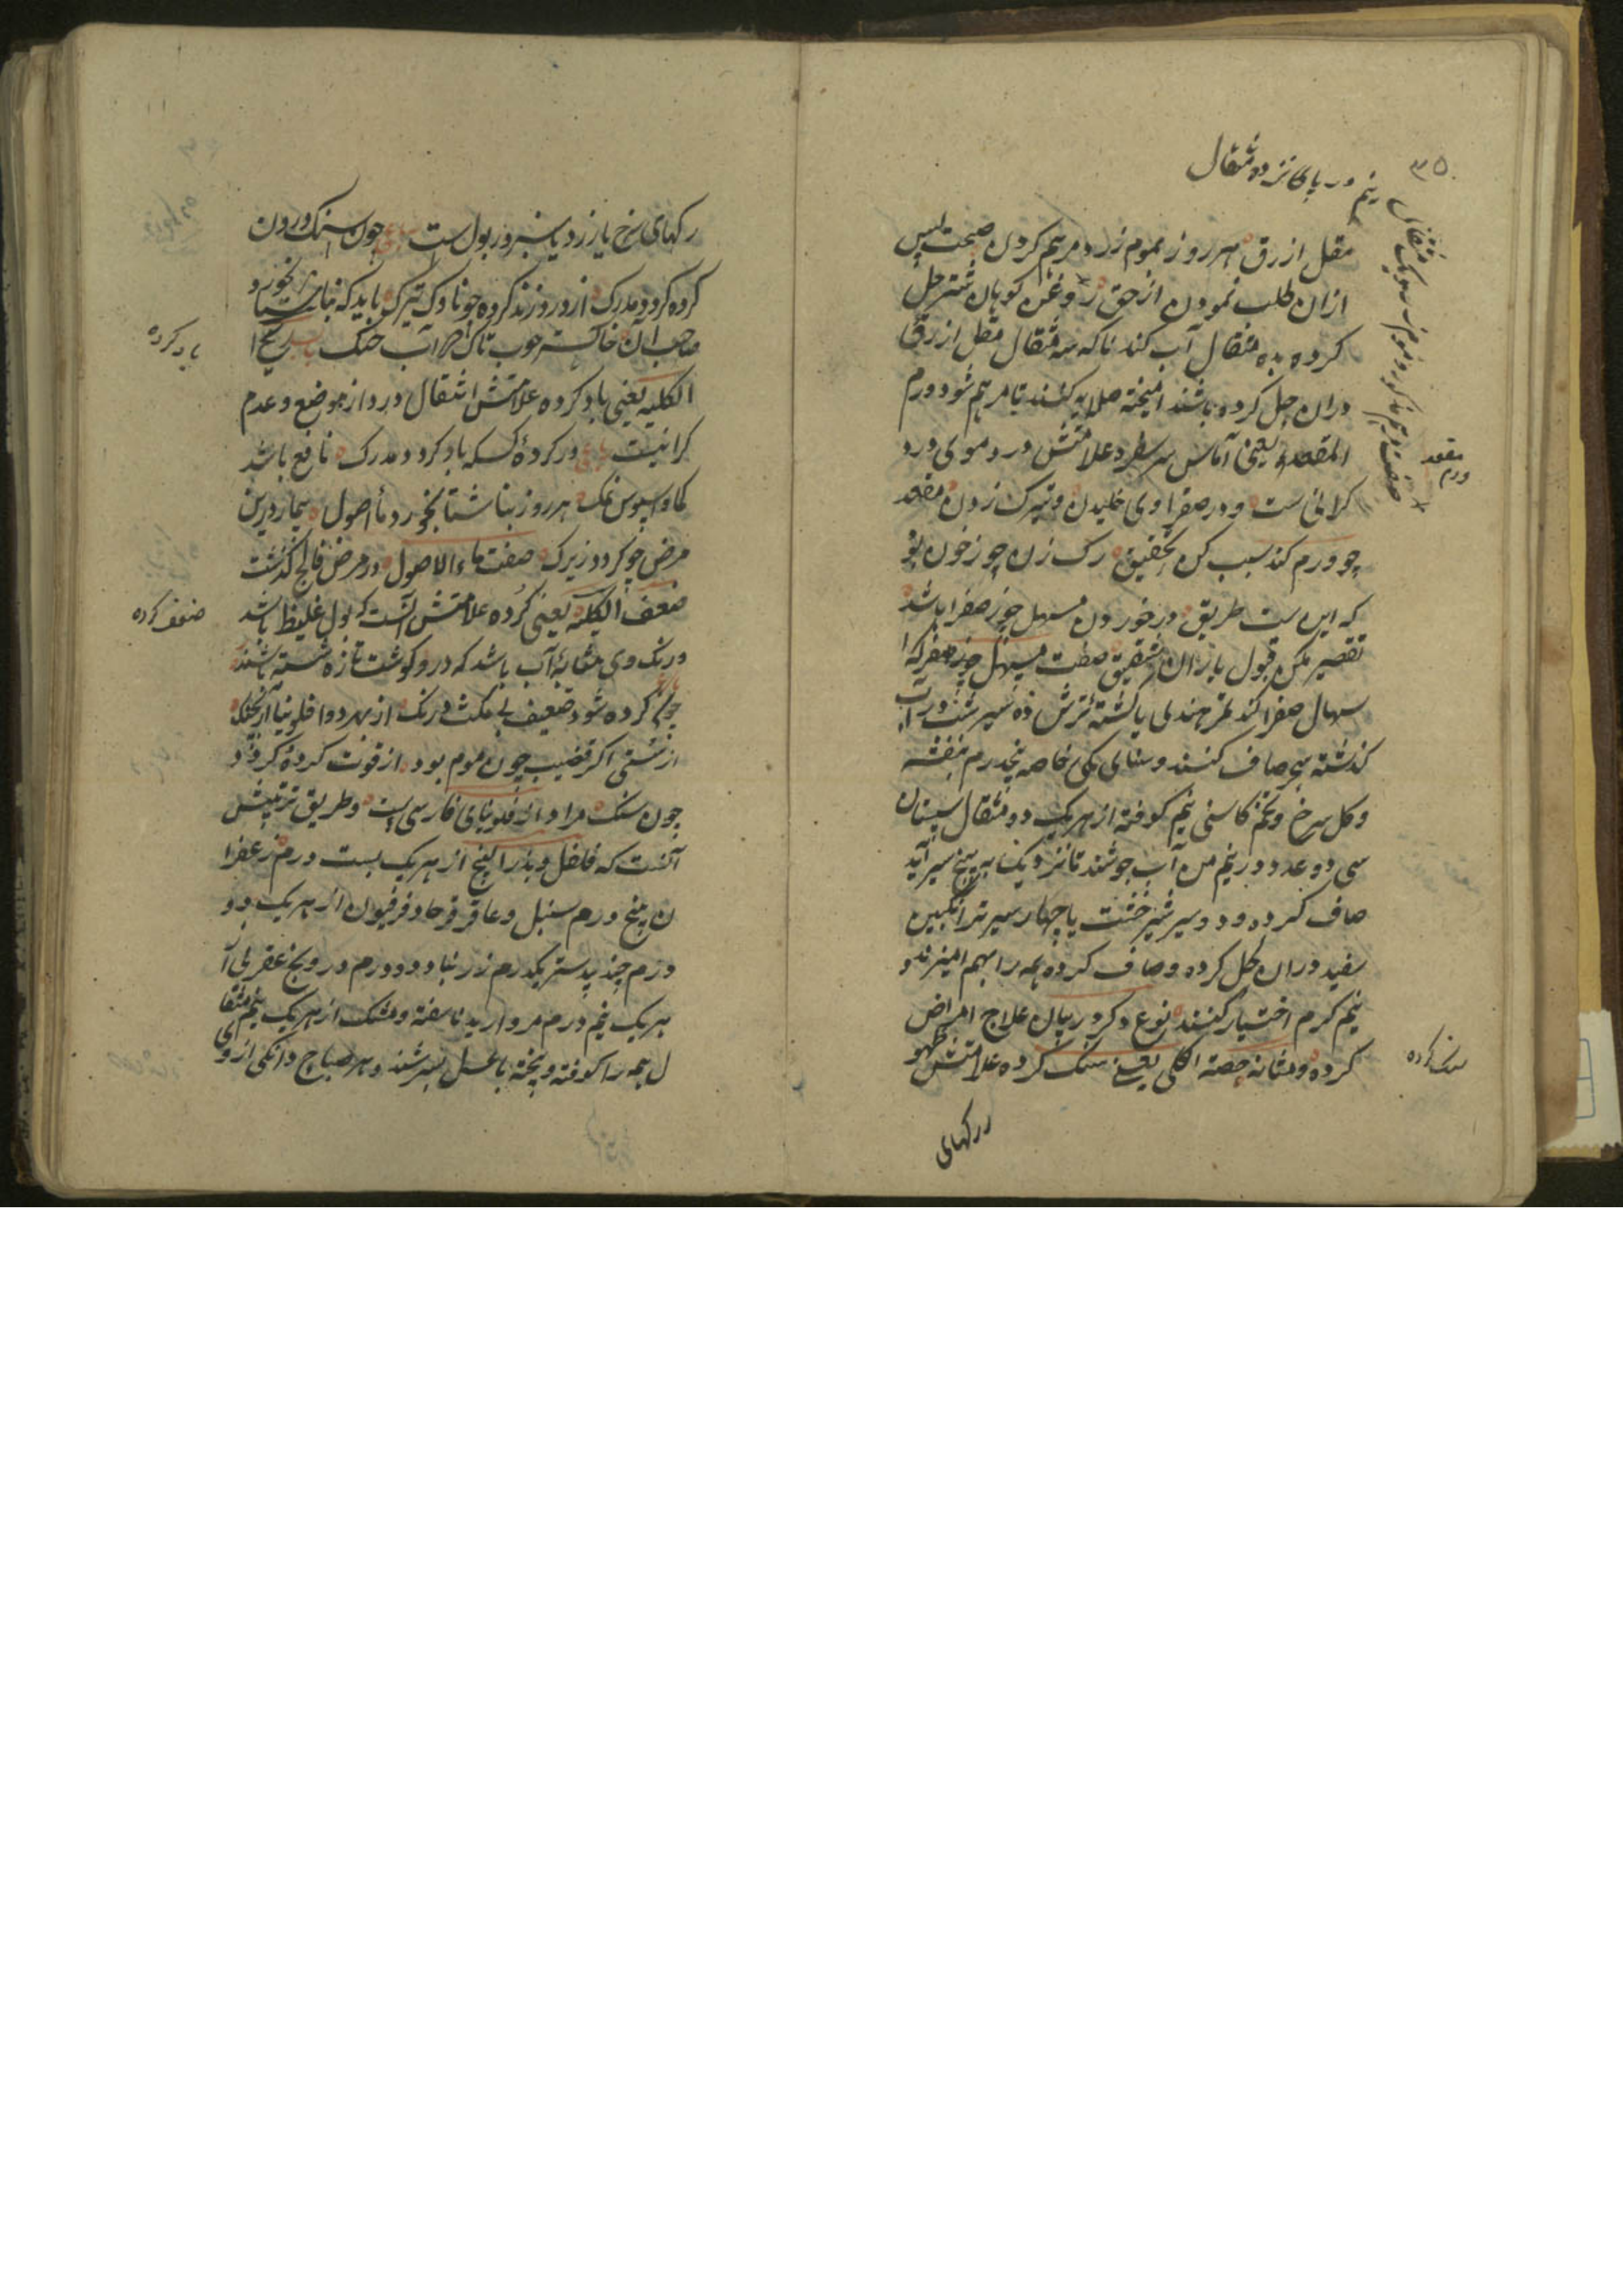 ۳۵
نیم درم یا کانزده مثقال
مقل ازرق هر روز بموم زرد مرهم کردن صحت پس
ازان طلب نمودن از حق روغن کوهان شتر حل
کرده بده مثقال آب کند ناکه سه مثقال مقل ازرق
دران حل کرده باشند امیخته صلایه کنند تا مرهم شود ورم
المقعد یعنی آماس علامتش در دموی درد
کرانی است و در صفراوی خلیدن و زدن مقعد
چو ورم کند سبب کن تحقیق رک زن چو ز خون بو
که این ست طریق در خوردن مسهل چو ز صفرا باشد
تقصیر مکن قبول باز ان شفیق صفت مسهل که ا
سهال صفرا کند تمر هندی یا کشته ترش ده سیر شب در آب
گذشته صاف کنند و سنای مکی خاصه پنجدرم بنفشه
و کل سرخ و تخم کاسنی نیم کوفته از هر یک دو مثقال سپستان
سی دو عدد در نیم من آب جوشند تا نزدیک به پنج سیر آید
صاف کرده و دو سیر شیر خشت یا چهار سیر ترانکبین
سفید دران حل کرده و صاف کرده همه را بهم امیزند و
نیم کرم اختیار کنند نوع دکر در بیان علاج امراض
کرده و مثانه حصته الکلی یعنی سنک کرده علامتش ظهو
ررکهای
ورم مقعد
سنک کرده
رکهای سرخ یا زرد یا سبز در بول ست چون سنک درون
کرده کردد مدرک از درد زند کرده چو ناوک تیرک باید که بناشتا بخورد
صاحب آن خاکستر چوب تاک در آب خنک ریح ا
لکلیه یعنی باد کرده علامتش انتقال درد از موضع و عدم
کرانیست در کردۀ کسکه باد کردد مدرک نافع باشد
کماد سبوس نمک هر روز بناشتا بخورد ماء اصول بیمار درین
مرض چو کردد زیرک صفت ماء الاصول در مرض فالج گذشت
ضعف الکلیه یعنی کرده علامتش آنست که بول غلیظ باشد
و رنک وی مثابۀ آب باشد که درو کوشت تازه شسته باشند
چون کرده شود ضعیف بی مکث و درنک از بهر دوا فلونیا آر بچنک
از سستی اکر قضیب چون موم بود از قوت کرده کردد
چون سنک مراد از فلونیای فارسی ست و طریق ترتیبش
آنست که فلفل و بذر البنج از هر یک بست درم زعفرا
ن پنج درم سنبل و عاقرقرحا و فرفیون از هر یک دو
درم جند بیدستر یکدرم زرنباد دو درم درونج عقربی ا
ز هر یک نیم درم مروارید ناسفته و مشک از هر یک نیم مثقا
ل همه را کوفته و بیخته با عسل بسرشند و هر صباح دانکی ازوی
باد کرده
ضعف کرده